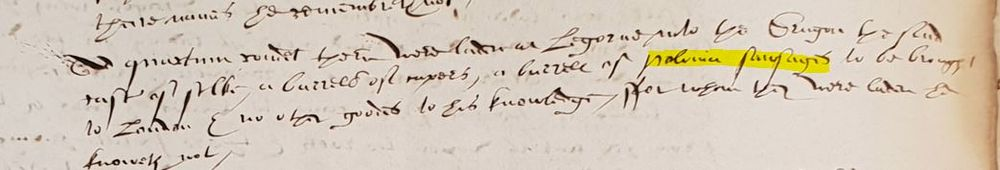 theire names he remembreth not,
Ad quartum rendet there were laden at Legorne into the Dragon the said
case of silke, a barrell of capers, a barrell of polonia sausages to be brought
to London & no other goodes to his knowledge, ffor whom they were laden he
knoweth not,